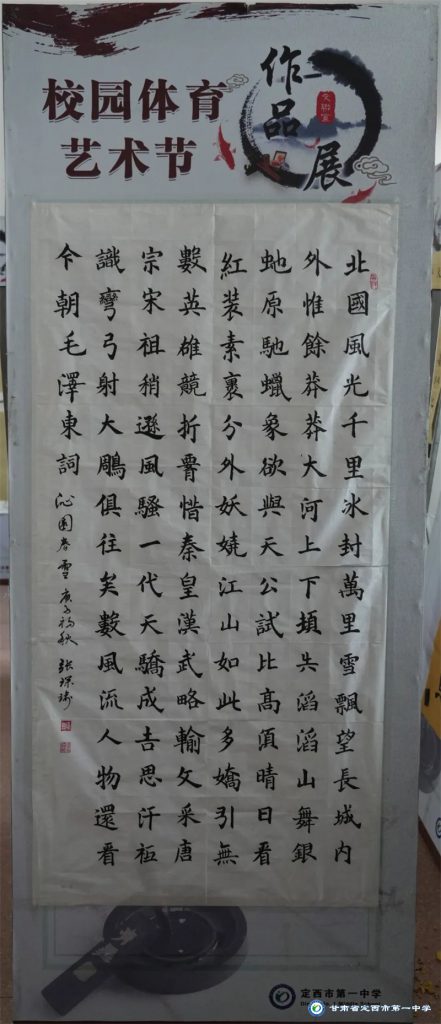 校园体育
艺术节
作品展
北國風光千里冰封萬里雪飄望長城内
外惟餘莽莽大河上下頓失滔滔山舞銀
虵原馳蠟象欲與天公試比高須晴日看
紅装素裹分外妖娆江山如此多嬌引無
數英雄競折腰惜秦皇漢武略輸文采唐
宗宋祖稍遜風騷一代天驕成吉思汗衹
識彎弓射大鵰俱往矣數風流人物還看
今朝毛澤東詞 沁園春雪 庚子初秋
定西市第一中学
甘肃省定西市第一中学